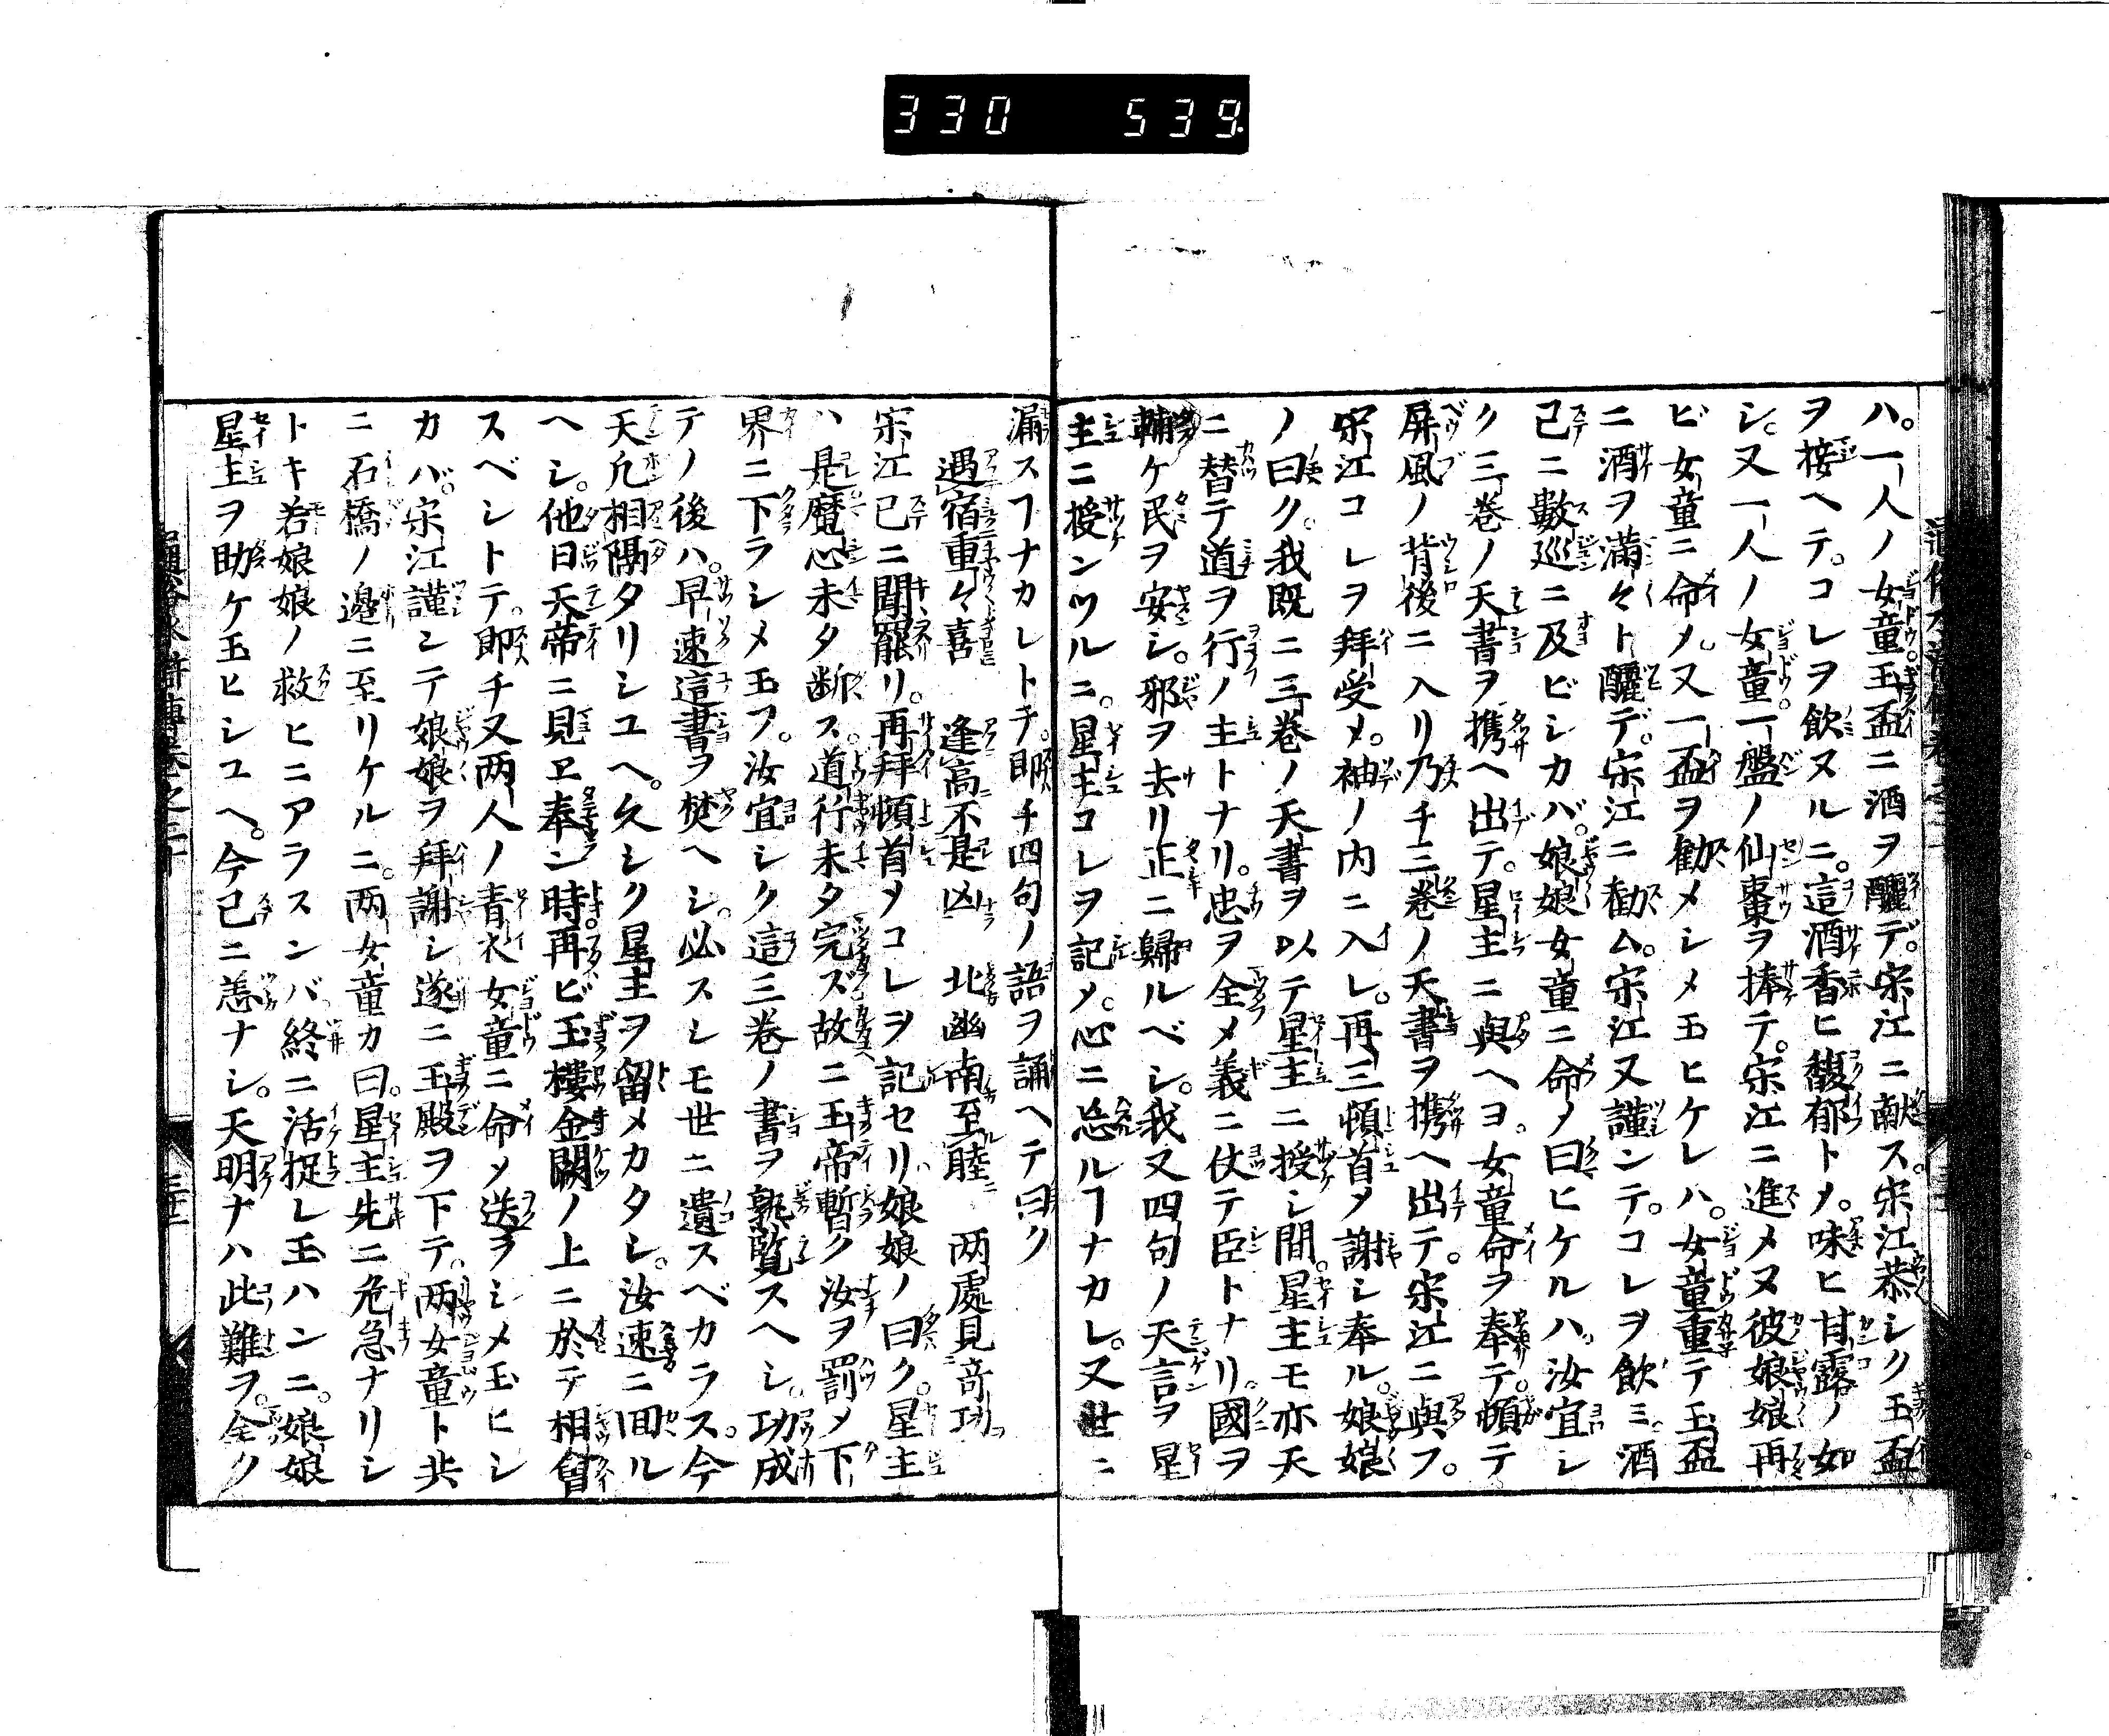 330 539
ハ。一人ノ女童玉盃ニ酒ヲ釃デ。宋江ニ献ス。宋江恭シク玉盃
ヲ接ヘテ。コレヲ飲ヌルニ。這酒香ヒ馥郁トメ。味ヒ甘露ノ如
シ。又一人ノ女童一盤ノ仙棗ヲ捧テ。宋江ニ進メヌ彼娘娘再
ビ女童ニ命メ。又一盃ヲ勧メシメ玉ヒケレハ。女童重テ玉盃
ニ酒ヲ満々ト釃デ。宋江ニ勧ム。宋江又謹ンテ。コレヲ飲ミ。酒
已ニ數巡ニ及ビシカバ。娘娘女童ニ命メ曰ヒケルハ。汝宜シ
ク三巻ノ天書ヲ携ヘ出テ。星主ニ與ヘヨ。女童命ヲ奉テ。頓テ
屏風ノ背後ニ入リ乃チ三巻ノ天書ヲ携ヘ出テ。宋江ニ與フ。
宋江コレヲ拜受メ。袖ノ内ニ入レ。再三頓首メ謝シ奉ル。娘娘
ノ曰ク。我既ニ三巻ノ天書ヲ以テ星主ニ授シ間。星主モ亦天
ニ替テ道ヲ行ノ主トナリ。忠ヲ全メ義ニ仗テ臣トナリ。國ヲ
輔ケ民ヲ安シ。邪ヲ去リ正ニ歸ルベシ。我又四句ノ天言ヲ星
主ニ授ンツルニ。星主コレヲ記メ。心ニ忘ルヿナカレ。又世ニ
漏スヿナカレトテ。即チ四句ノ語ヲ誦ヘテ曰ク
遇宿重々喜 逢高不是凶 北幽南至睦 两處見竒功
宋江已ニ聞罷リ。再拜頓首メコレヲ記セリ娘娘ノ曰ク。星主
ハ是魔心未タ断ス。道行未タ完ズ故ニ玉帝暫ク汝ヲ罰メ下
界ニ下ラシメ玉フ。汝宜シク這三巻ノ書ヲ熟覧スヘシ。功成
テノ後ハ。早速這書ヲ焚ヘシ。必スシモ世ニ遺スベカラス。今
天凡相隔タリシユヘ。久シク星主ヲ留メカタシ。汝速ニ回ル
ヘシ。他日天帝ニ見ヱ奉ン時。再ビ玉樓金闕ノ上ニ於テ相會
スベシトテ。即チ又两人ノ青衣女童ニ命メ送ラシメ玉ヒシ
カバ。宋江謹ンテ娘娘ヲ拜謝シ遂ニ玉殿ヲ下テ。两女童ト共
ニ石橋ノ邉ニ至リケルニ。两女童カ曰。星主先ニ危急ナリシ
トキ若娘娘ノ救ヒニアラスンバ終ニ活捉レ玉ハンニ。娘娘
星主ヲ助ケ玉ヒシユヘ。今已ニ恙ナシ。天明ナハ此難ヲ。全ク